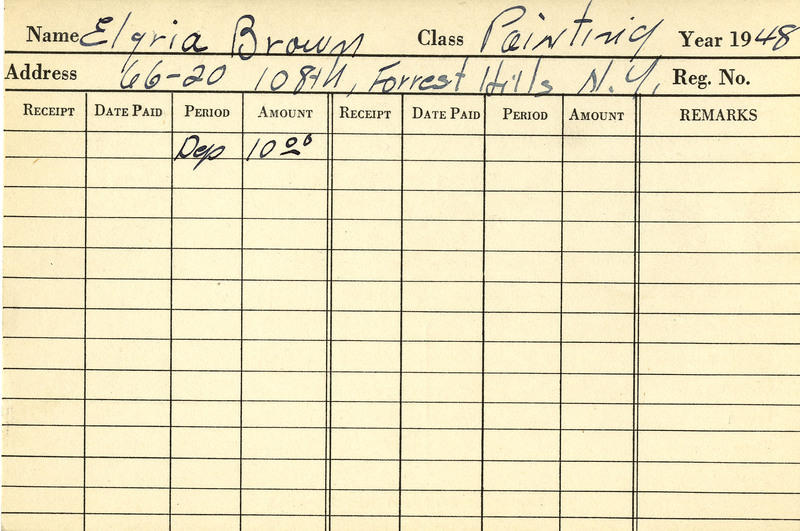 Name Elyria Brown Class Painting Year 1948
Address 66-20 108th, Forrest Hills N.Y. Reg. No.
RECEIPT DATE PAID PERIOD AMOUNT RECEIPT DATE PAID PERIOD AMOUNT REMARKS
Dep 10 00